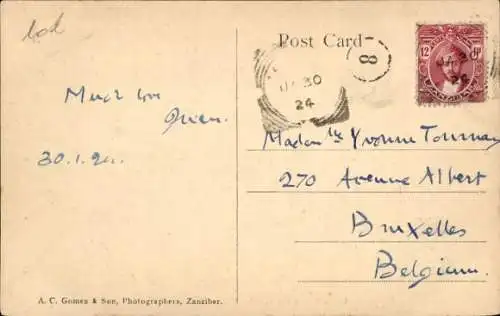 Post Card
8
JA 30
24
12
Much love
30.1.24.
Madame Yvonne Tournay
270 Avenue Albert
Bruxelles
Belgium.
A. C. Gomes & Son, Photographers, Zanzibar.